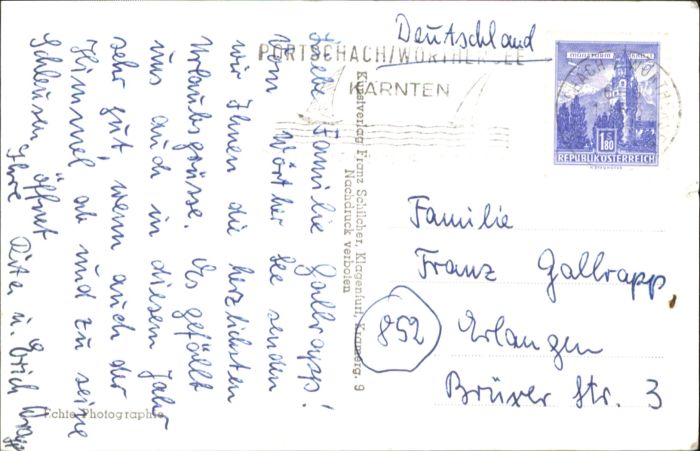 Liebe Familie Gallrapp!
Vom Wörther See senden
wir Ihnen die herzlichsten
Urlaubsgrüsse. Es gefällt
uns auch in diesem Jahr
sehr gut, wenn auch der
Himmel ab und zu seine
Schleusen öffnet
Ihre Rita u. Erich
Echte Photographie
Kunstverlag Franz Schilcher, Klagenfurt, 9
Nachdruck verboten
Deutschland
PÖRTSCHACH/WÖRTHERSEE
KÄRNTEN
1.80
REPUBLIK ÖSTERREICH
Familie
Franz Gallrapp,
852
Erlangen
Brüxer Str. 3